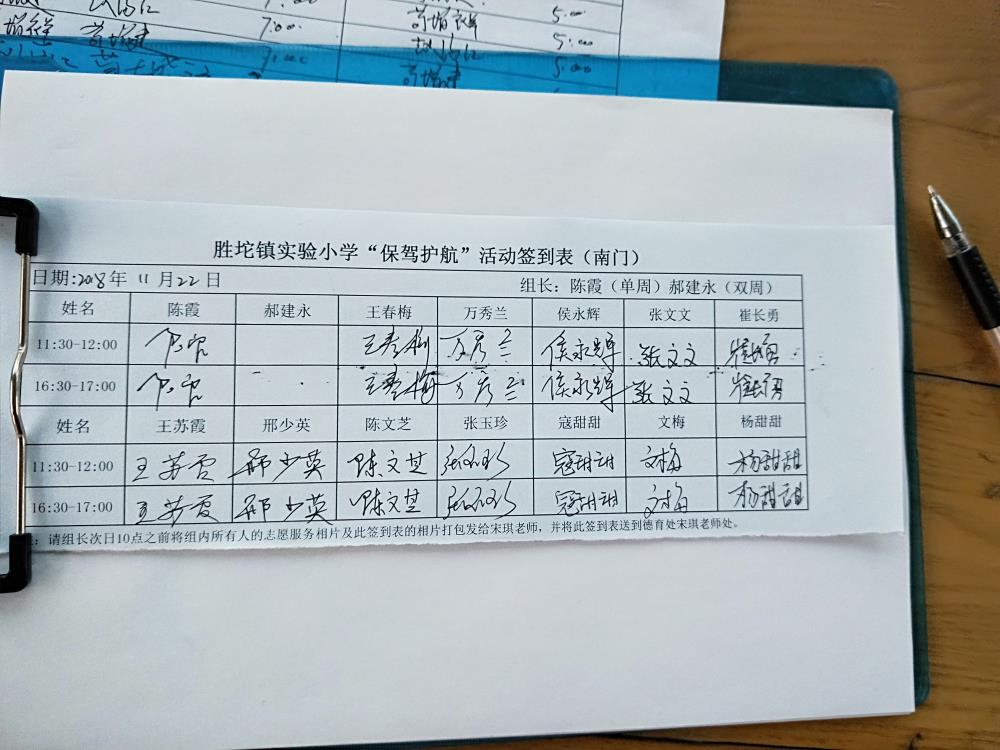 7:00 5:00
7:00 5:00
胜坨镇实验小学“保驾护航”活动签到表（南门）
日期:2018年 11月22日 组长：陈霞（单周）郝建永（双周）
姓名 陈霞 郝建永 王春梅 万秀兰 侯永辉 张文文 崔长勇
11:30-12:00 王春梅 万秀兰 侯永辉 张文文 崔长勇
16:30-17:00 王春梅 万秀兰 侯永辉 张文文 崔长勇
姓名 王苏霞 邢少英 陈文芝 张玉珍 寇甜甜 文梅 杨甜甜
11:30-12:00 王苏霞 邢少英 陈文芝 张玉珍 寇甜甜 文梅 杨甜甜
16:30-17:00 王苏霞 邢少英 陈文芝 张玉珍 寇甜甜 文梅 杨甜甜
：请组长次日10点之前将组内所有人的志愿服务相片及此签到表的相片打包发给宋琪老师，并将此签到表送到德育处宋琪老师处。